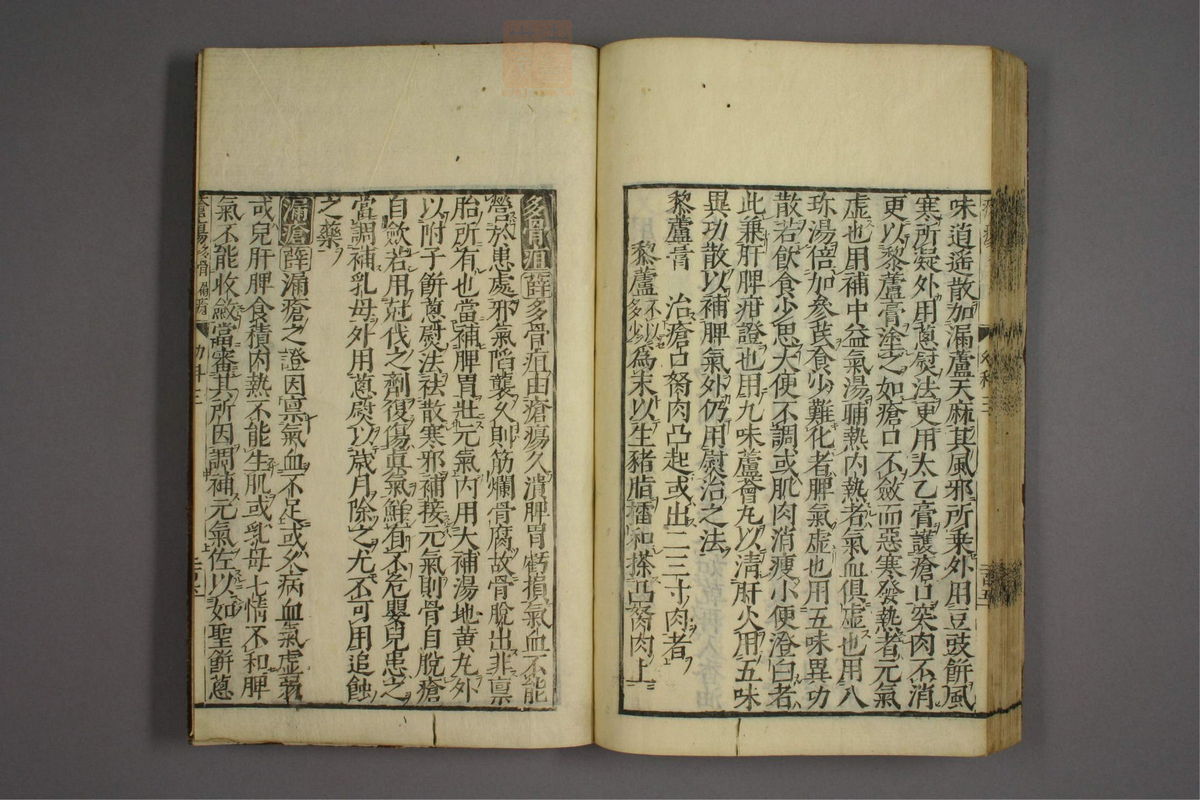 味逍遥散加漏蘆天麻其風邪所乗外用豆豉餅風
寒所凝外用蔥熨法更用太乙膏護瘡口突肉不消
更以藜蘆膏塗之如瘡口不斂而惡寒發熱者元氣
虛也用補中益氣湯晡熱內熱者氣血俱虛也用八
珎湯倍加參芪食少難化者脾氣虛也用五味異功
散若飲食少思大便不調或肌肉消瘦小便澄白者
此兼肝脾疳證也用九味蘆薈丸以清肝火用五味
異功散以補脾氣外仍用熨治之法
藜蘆膏 治瘡口胬肉凸起或出二三寸肉者
藜蘆不以多少為末以生豬脂擂和搽凸胬肉上
多骨疽薛多骨疽由瘡瘍久潰脾胃虧損氣血不能
營於患處邪氣陷襲久則筋爛骨腐故骨脫出非禀
胎所有也當補脾胃壯元氣內用大補湯地黄丸外
以附子餅蔥熨法祛散寒邪補接元氣則骨自脫瘡
自斂若用尅伐之劑復傷真氣鮮有不危嬰兒患之
當調補乳母外用蔥熨以歲月除之尤不可用追蝕
之藥
漏瘡薛漏瘡之證因禀氣血不足或久病血氣虛弱
或兒肝脾食積內熱不能生肌或乳母七情不和脾
氣不能收斂當審其所因調補元氣佐以如聖餅蔥